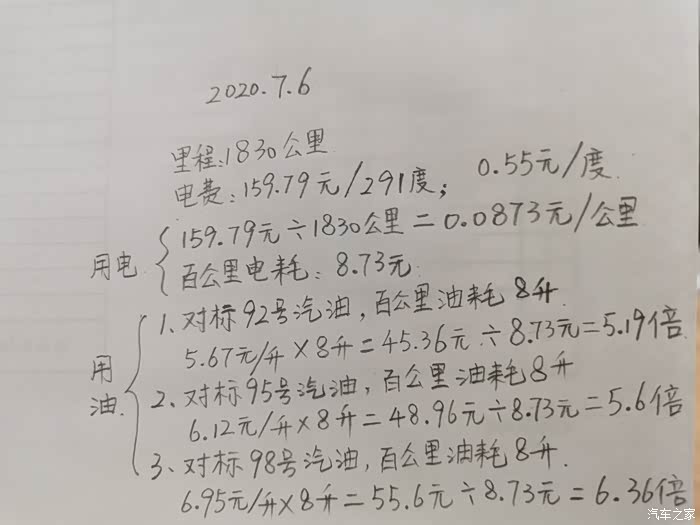 2020.7.6
里程:1830公里
电费:159.79元/291度; 0.55元/度
用电
159.79元÷1830公里=0.0873元/公里
百公里电耗:8.73元
用油
1、对标92号汽油,百公里油耗8升.
5.67元/升×8升=45.36元÷8.73元=5.19倍
2、对标95号汽油,百公里油耗8升
6.12元/升×8升=48.96元÷8.73元=5.6倍
3、对标98号汽油,百公里油耗8升.
6.95元/升×8升=55.6元÷8.73元=6.36倍
汽车之家